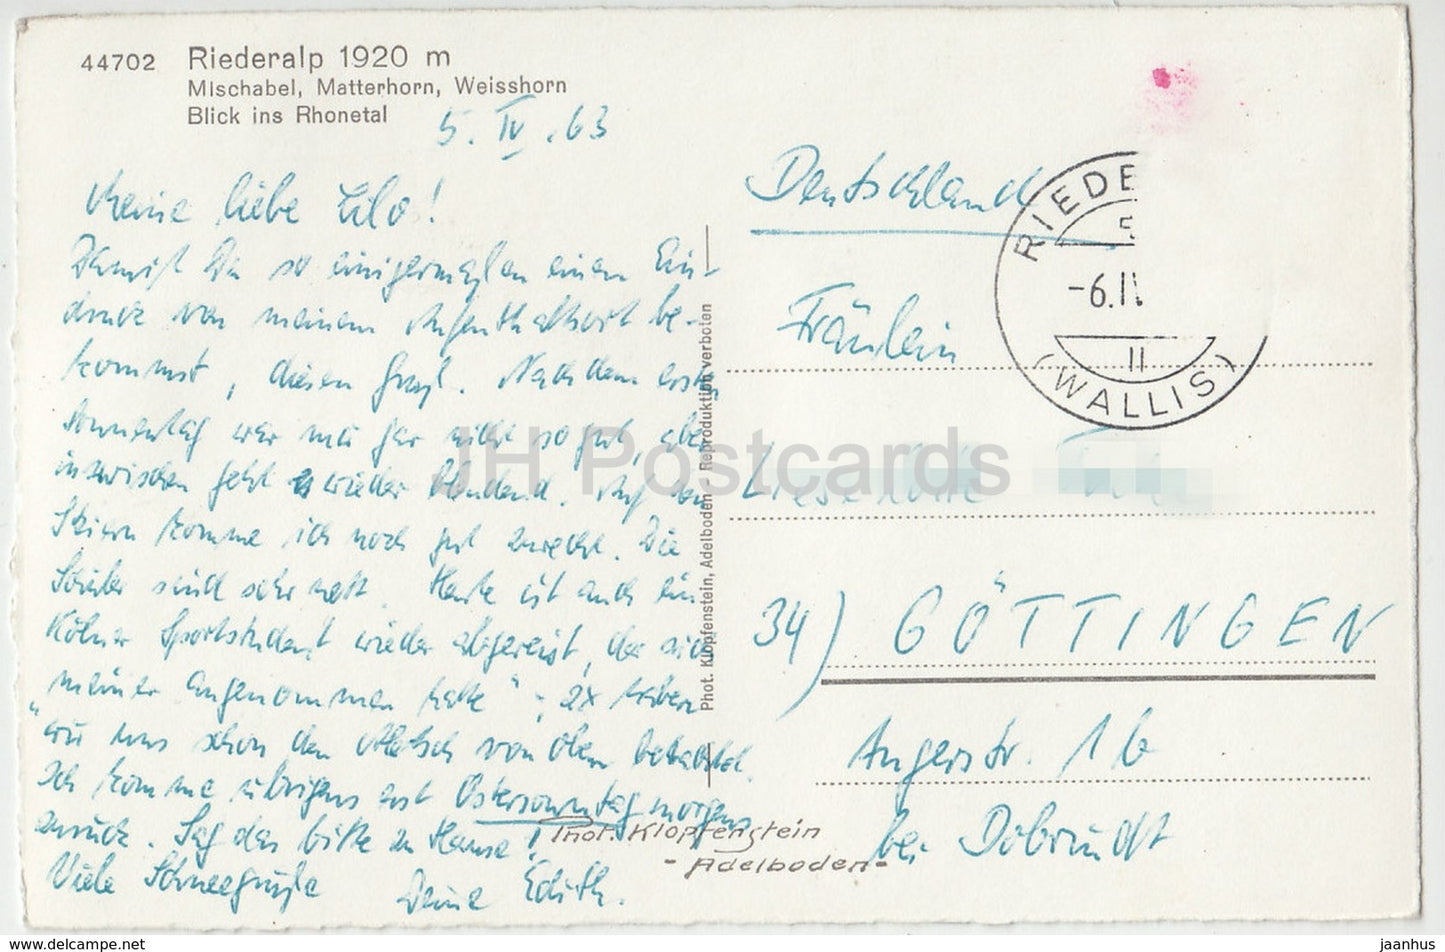 44702 Riederalp 1920 m
Mischabel, Matterhorn, Weisshorn
Blick ins Rhonetal
5. IV. 63
Meine liebe Lilo!
Damit Du so einigermaßen einen Ein-
druck von meinem Aufenthaltsort be-
kommst, diesen Gruß. Nach dem ersten
Sonnentag war mir gar nicht so gut, aber
inzwischen geht es wieder blendend. Auf den
Skiern komme ich noch gut zurecht. Die
Schüler sind sehr nett. Heute ist auch ein
Kölner Sportstudent wieder abgereist, der sich
meiner angenommen hatte"; 2x haben
wir uns schon den Aletsch von oben betrachtet.
Ich komme übrigens erst Ostersonntag morgen
zurück. Sag das bitte zu Hause!
Viele Schneegrüße Deine Edith.
Phot. Klopfenstein, Adelboden - Reproduktion verboten
Phot. Klopfenstein
- Adelboden -
RIEDE
-6.IV
II
(WALLIS)
Deutschland
Fräulein
Lieselotte
34) GÖTTINGEN
Angerstr. 1b
bei Dobrindt
JH Postcards
delcampe.net
jaanhus